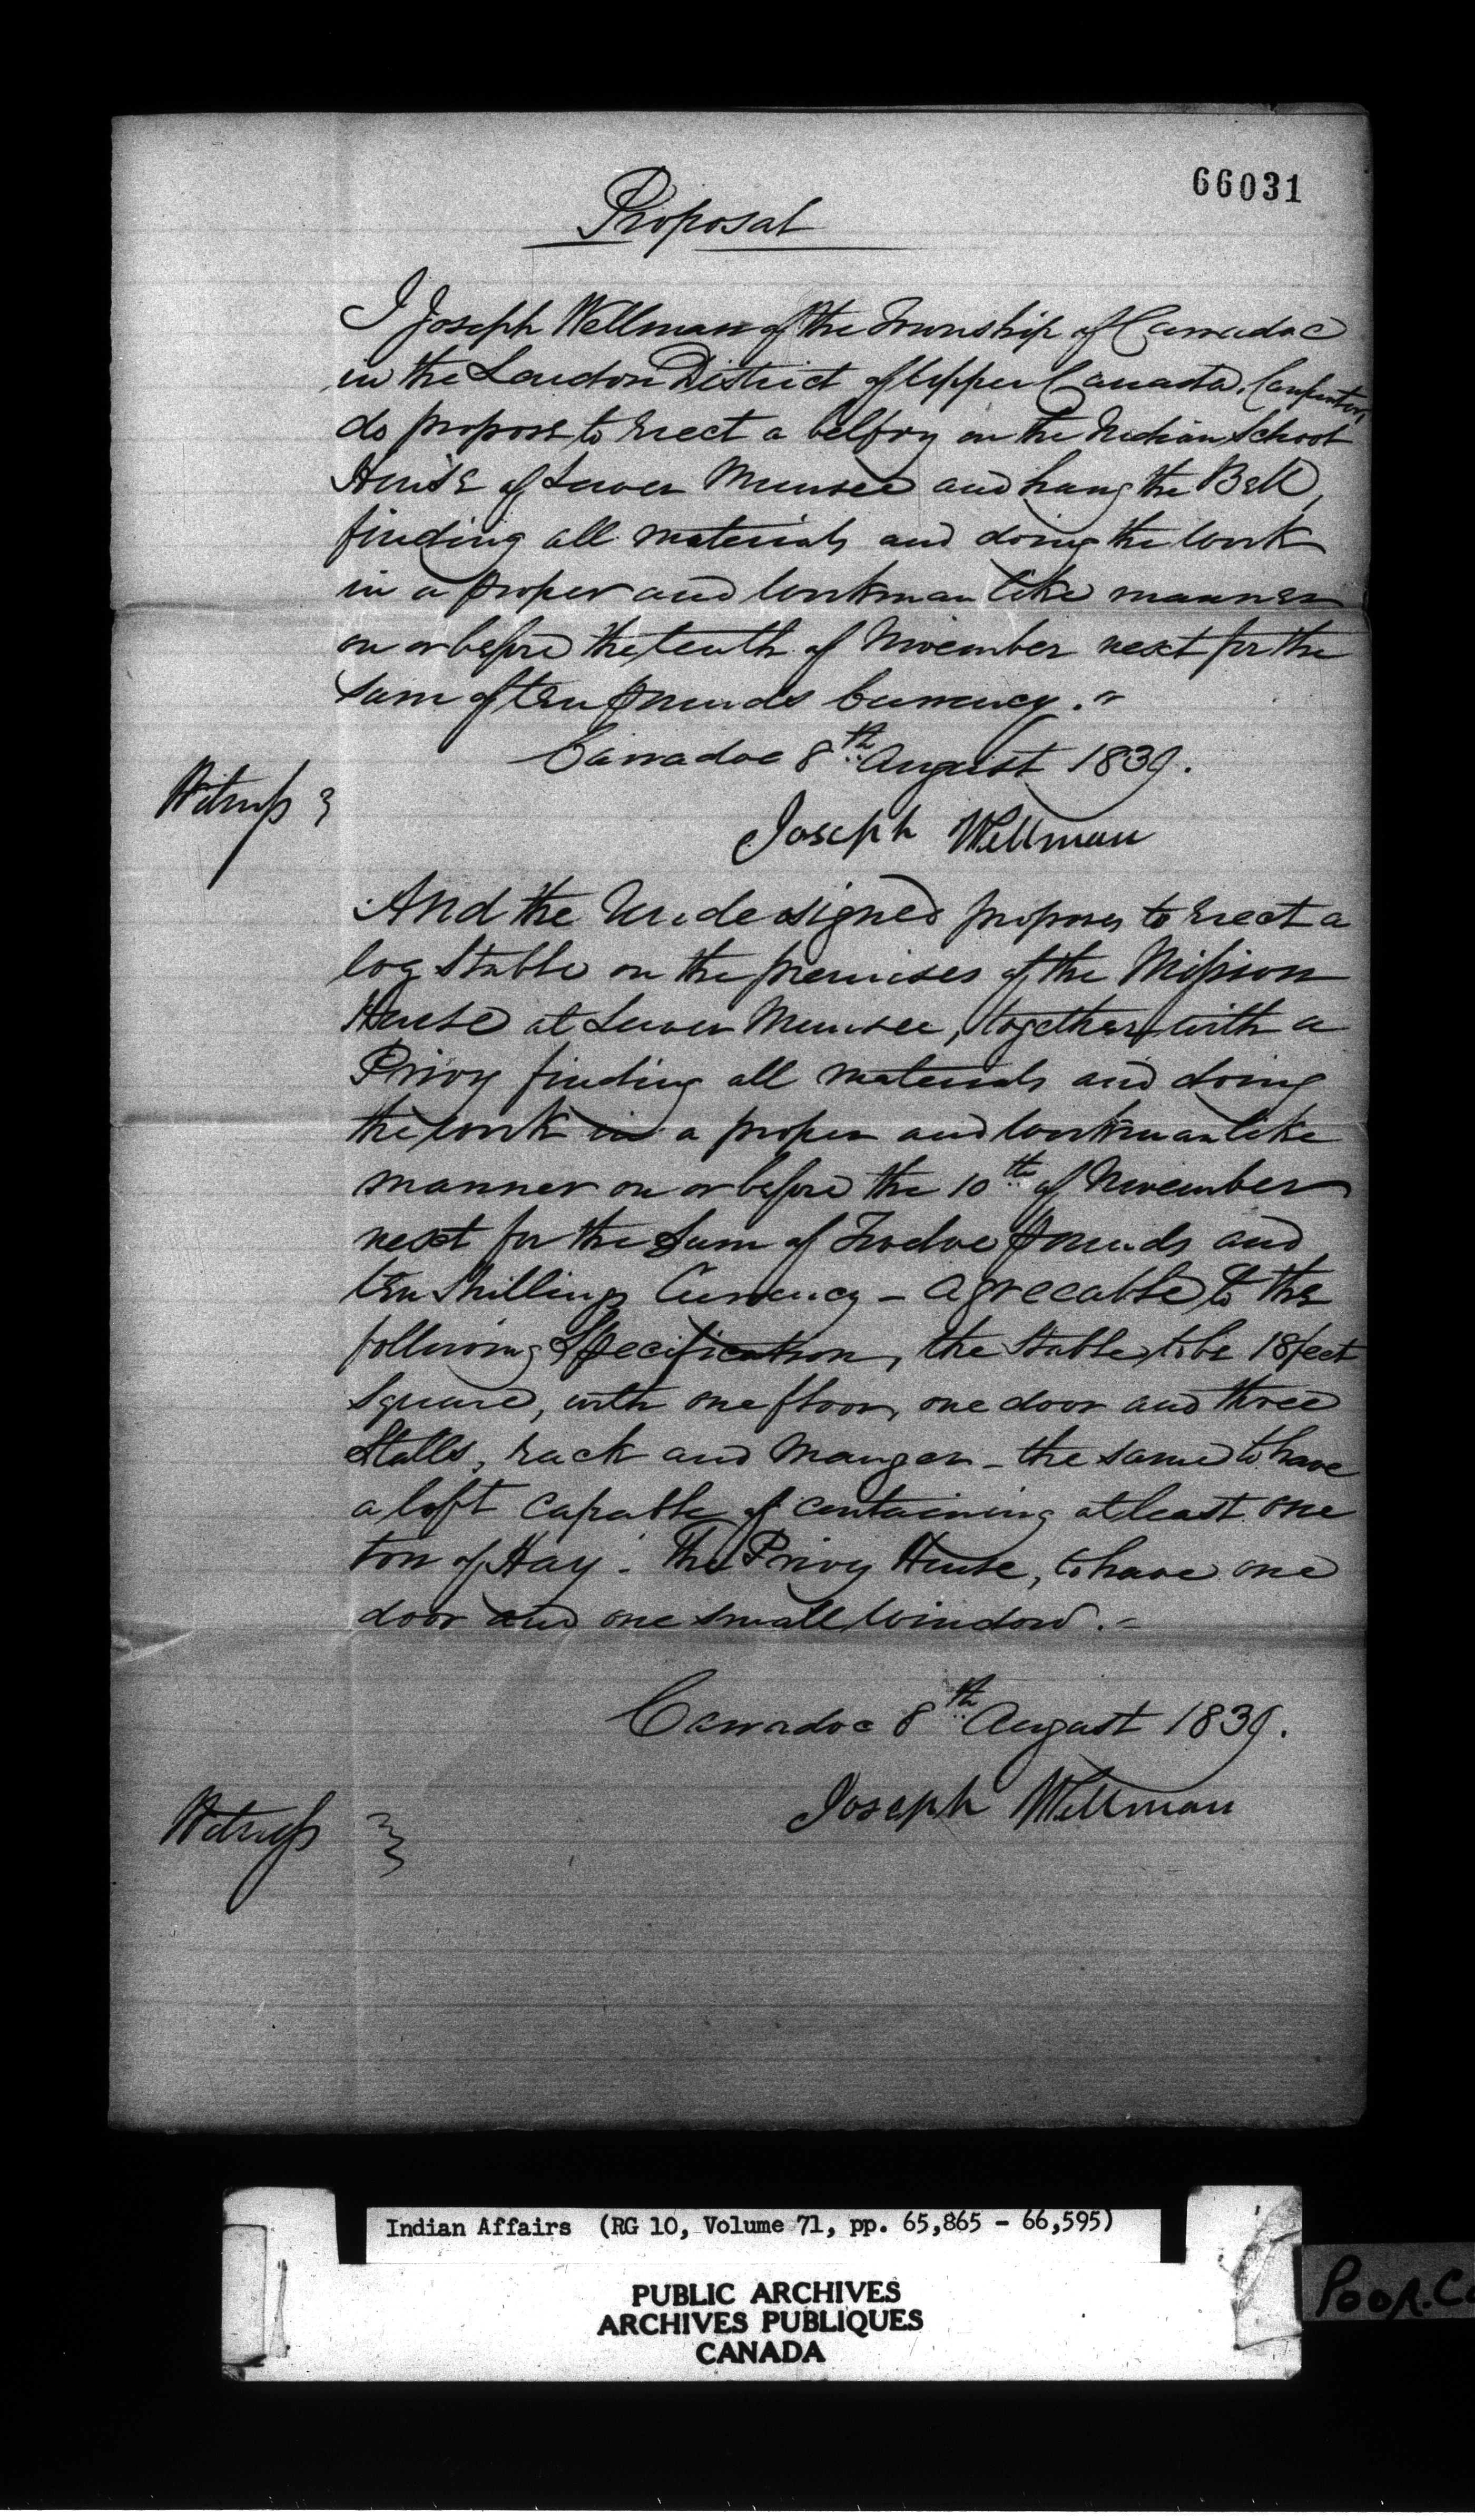 66031
Proposal
I Joseph Wellman of the Township of Carradoc
in the London District of Upper Canada, Carpenter,
do propose to erect a belfry on the Indian School
House of Lower Munsee and hang the Bell,
finding all materials and doing the work
in a proper and workmanlike manner
on or before the tenth of November next for the
sum of ten pounds Currency.
Carradoc 8th August 1839.
Witness
Joseph Wellman
And the Undersigned proposes to erect a
log Stable on the premises of the Mission
House at Lower Munsee, together with a
Privy finding all materials and doing
the work in a proper and workmanlike
manner on or before the 10th of November
next for the Sum of Twelve pounds and
ten Shillings Currency - agreeable to the
following Specification, the Stable to be 18 feet
square, with one floor, one door and three
Stalls, rack and manger - the same to have
a loft capable of containing at least one
ton of Hay. The Privy House, to have one
door and one small window. -
Carradoc 8th August 1839.
Joseph Wellman
Witness
Indian Affairs (RG 10, Volume 71, pp. 65,865 - 66,595)
PUBLIC ARCHIVES
ARCHIVES PUBLIQUES
CANADA
POOR.Co